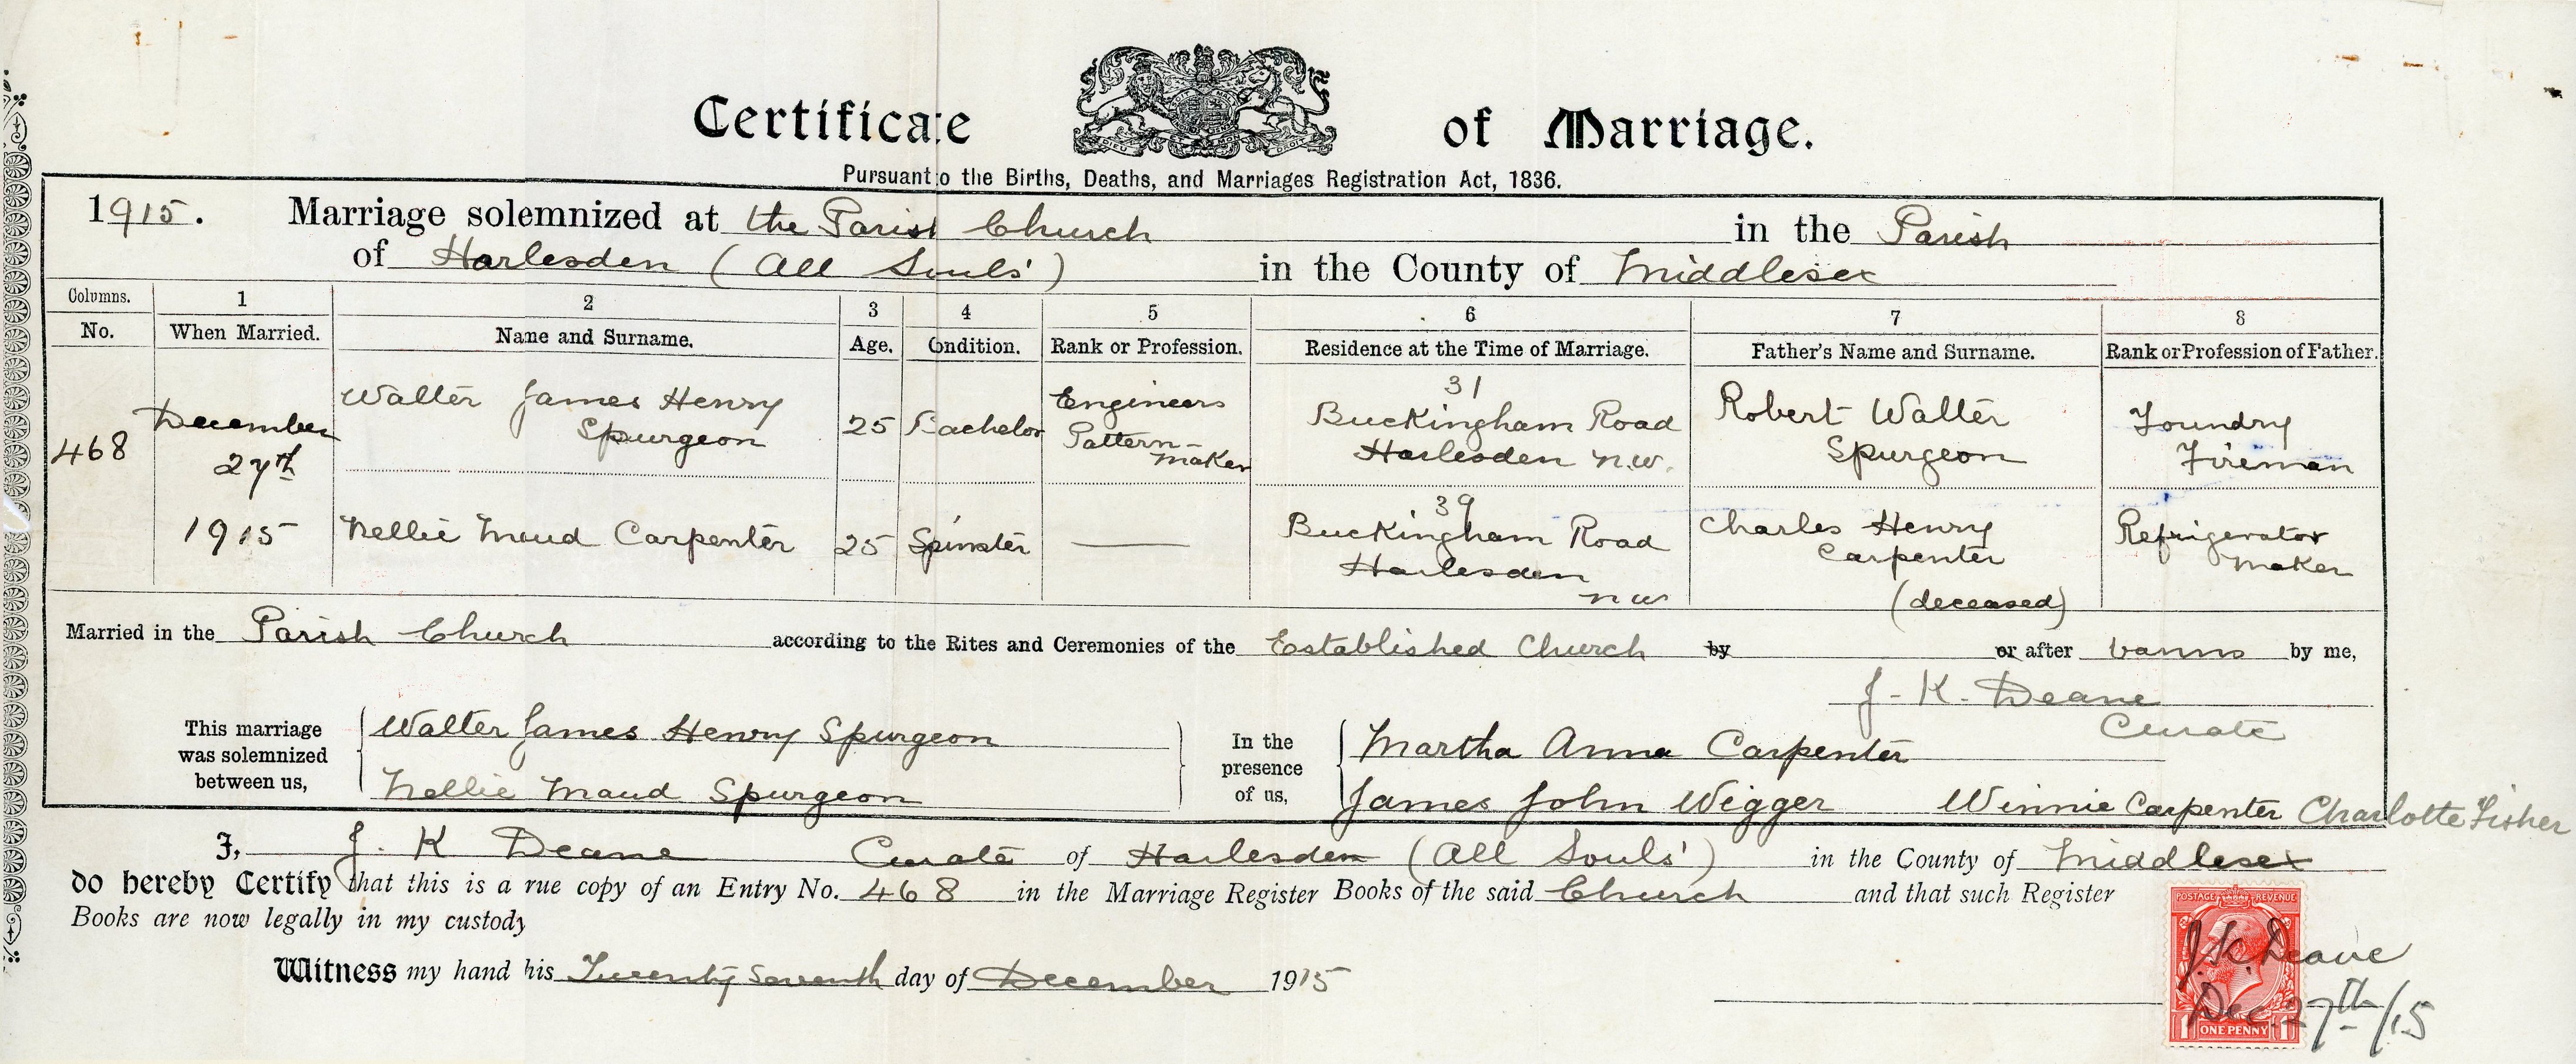 Certificate of Marriage.
Pursuant to the Births, Deaths, and Marriages Registration Act, 1836.
1915. Marriage solemnized at the Parish Church in the Parish
of Harlesden (All Souls') in the County of Middlesex
Columns. 1 2 3 4 5 6 7 8
No. When Married. Name and Surname. Age. Condition. Rank or Profession. Residence at the Time of Marriage. Father's Name and Surname. Rank or Profession of Father.
468 December 27th 1915
Walter James Henry Spurgeon 25 Bachelor Engineers Pattern-maker 31 Buckingham Road Harlesden N.W. Robert Walter Spurgeon Foundry Fireman
Nellie Maud Carpenter 25 Spinster — 39 Buckingham Road Harlesden N W Charles Henry Carpenter (deceased) Refrigerator maker
Married in the Parish Church according to the Rites and Ceremonies of the Established Church by or after banns by me,
J. K. Deane
Curate
This marriage was solemnized between us,
Walter James Henry Spurgeon
Nellie Maud Spurgeon
In the presence of us,
Martha Anna Carpenter
James John Wigger Winnie Carpenter Charlotte Fisher
I, J. K Deane Curate of Harlesden (All Souls') in the County of Middlesex
do hereby Certify that this is a rue copy of an Entry No. 468 in the Marriage Register Books of the said Church and that such Register
Books are now legally in my custody
Witness my hand his Twenty Seventh day of December 1915
POSTAGE REVENUE
J. K. Deane
Dec. 27th/15
1 ONE PENNY 1